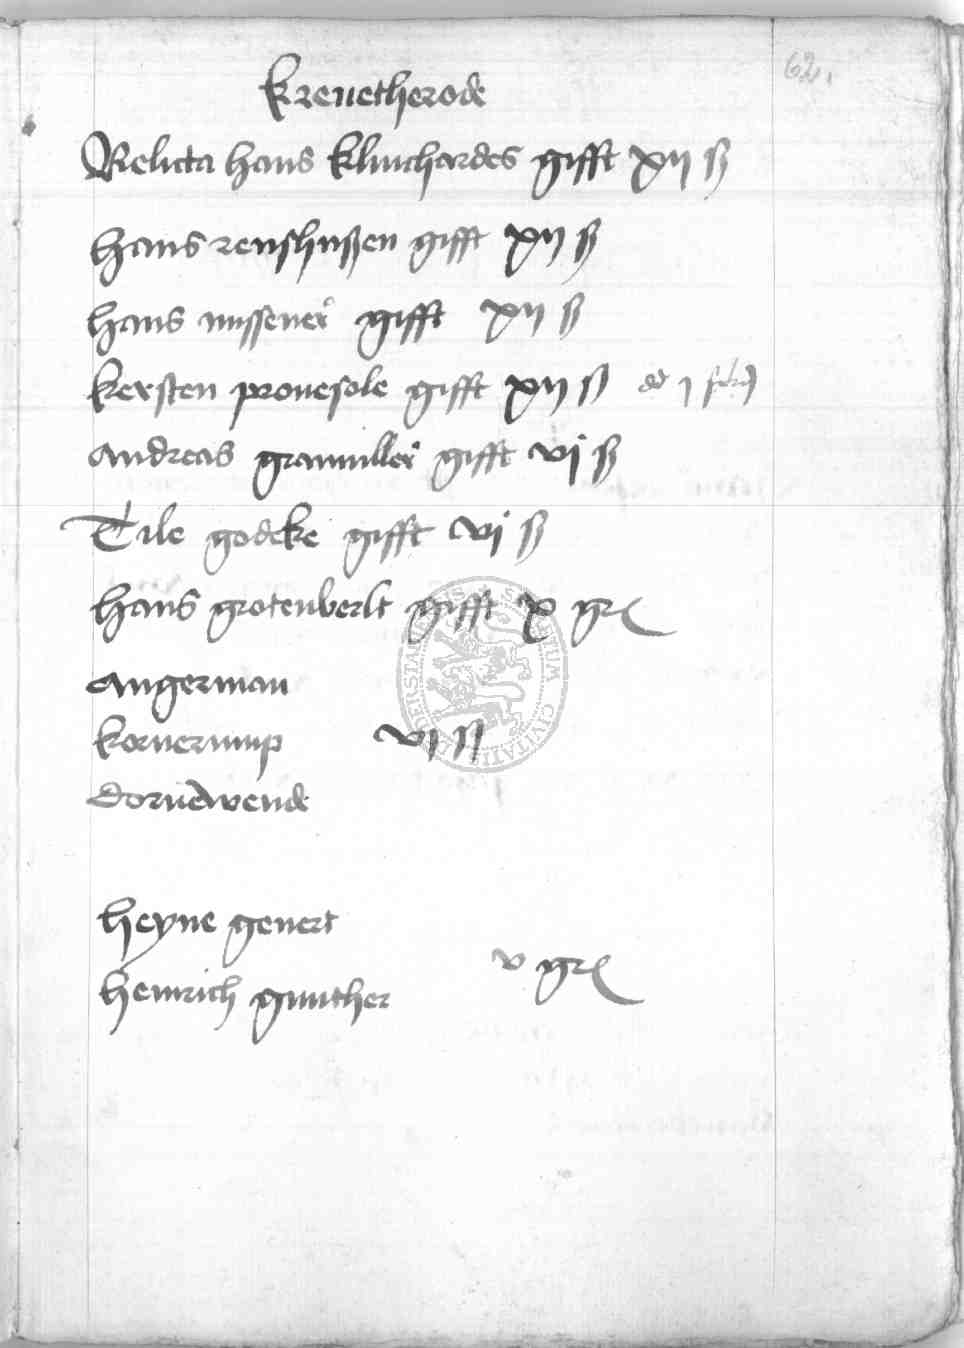 62.
Kreuetherode
Relicta hans klinchardes gifft xij ß
hans renshußen gifft xij ß
hans missener gifft xij ß
kersten prouesole gifft xij ß dd j
andreas gramuller gifft vj ß
Tile godeke gifft vj ß
hans grotenberlt gifft x gr
Angerman
kornerump vj ß
Dornewende
heyne geuert
v gr
heinrich gunther
SIGILLUM CIVITATIS